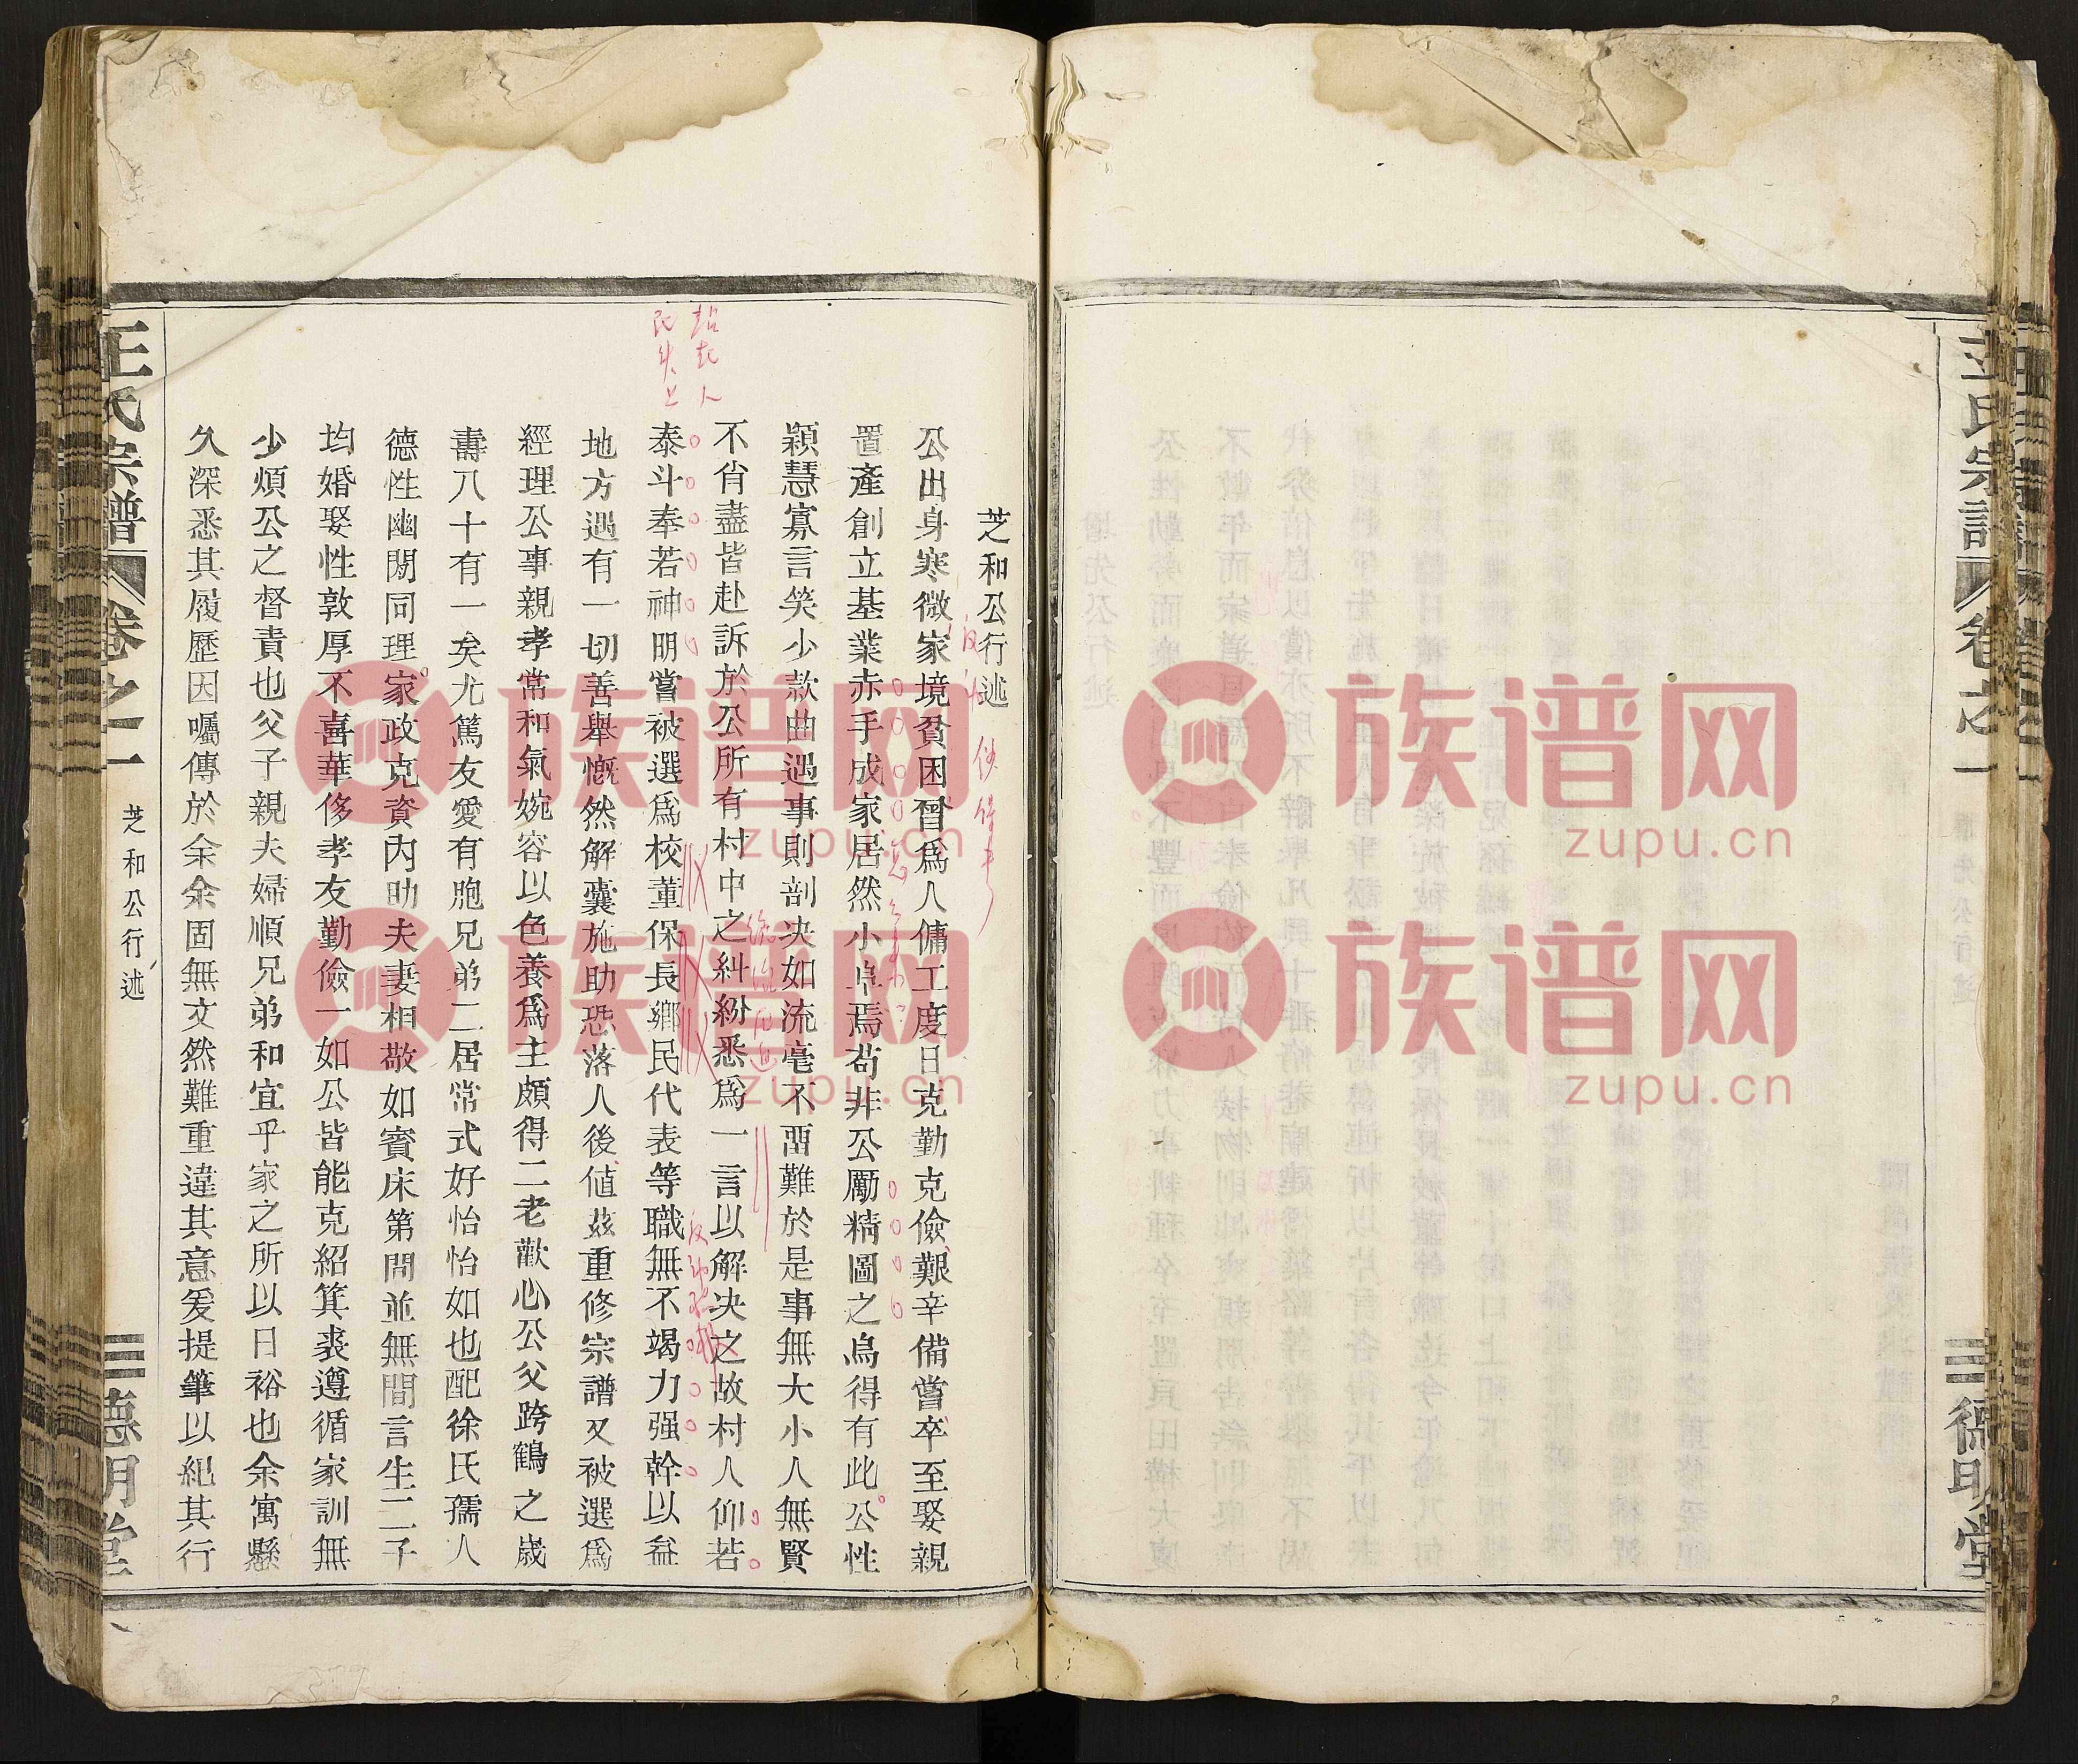 王氏宗譜
卷之一
德明堂
芝和公行述
公出身寒微家境貧困曾爲人傭工度日克勤克儉艱辛備嘗卒至娶親
置產創立基業赤手成家居然小阜焉苟非公勵精圖之烏得有此公性
穎慧寡言笑少款曲遇事則剖决如流毫不畱難於是事無大小人無賢
不肖盡皆赴訴於公所有村中之糾紛悉爲一言以解决之故村人仰若
泰斗奉若神明嘗被選爲校董保長鄉民代表等職無不竭力强幹以益
地方遇有一切善舉慨然解囊施助恐落人後値茲重修宗譜又被選爲
經理公事親孝常和氣婉容以色養爲主頗得二老歡心公父跨鶴之歲
壽八十有一矣尤篤友愛有胞兄弟二居常式好怡怡如也配徐氏孺人
德性幽閒同理家政克資內助夫妻相敬如賓床第間並無間言生二子
均婚娶性敦厚不喜華侈孝友勤儉一如公皆能克紹箕裘遵循家訓無
少煩公之督責也父子親夫婦順兄弟和宜乎家之所以日裕也余寓懸
久深悉其履歷因囑傳於余余固無文然難重違其意爰提筆以紀其行
王氏宗譜
卷之一
芝和公行述
德明堂
族谱网
zupu.cn
族谱网
zupu.cn
族谱网
zupu.cn
族谱网
zupu.cn